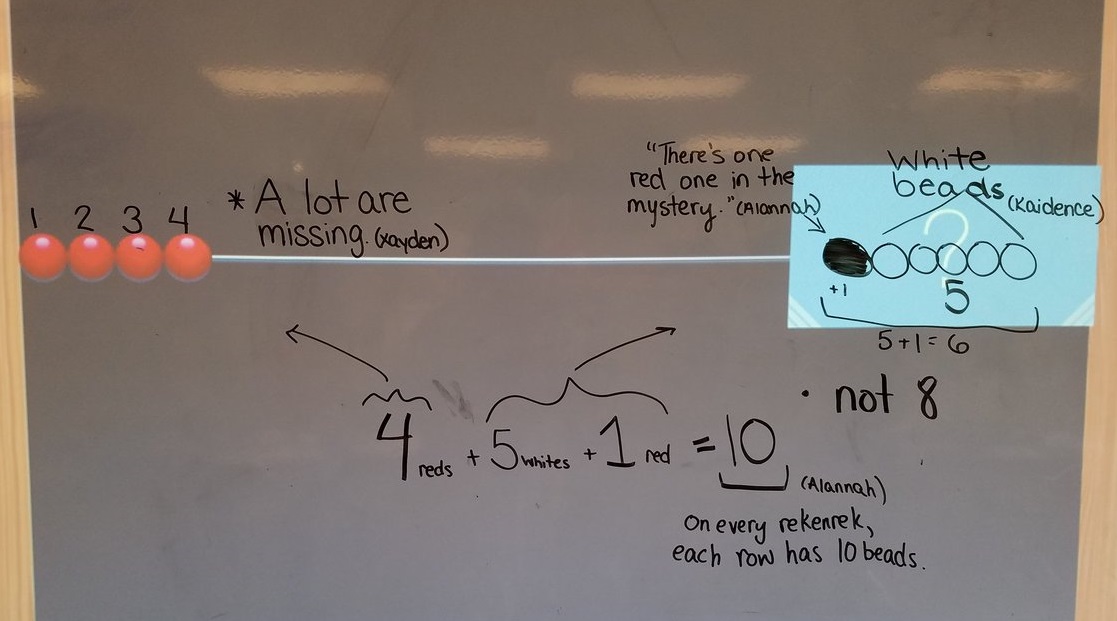 1 2 3 4
* A lot are
missing. (Kayden)
"There's one
red one in the
mystery." (Alannah)
White
beads (Kaidence)
?
+1
5
5+1=6
• not 8
4 reds + 5 whites + 1 red = 10
(Alannah)
On every rekenrek,
each row has 10 beads.